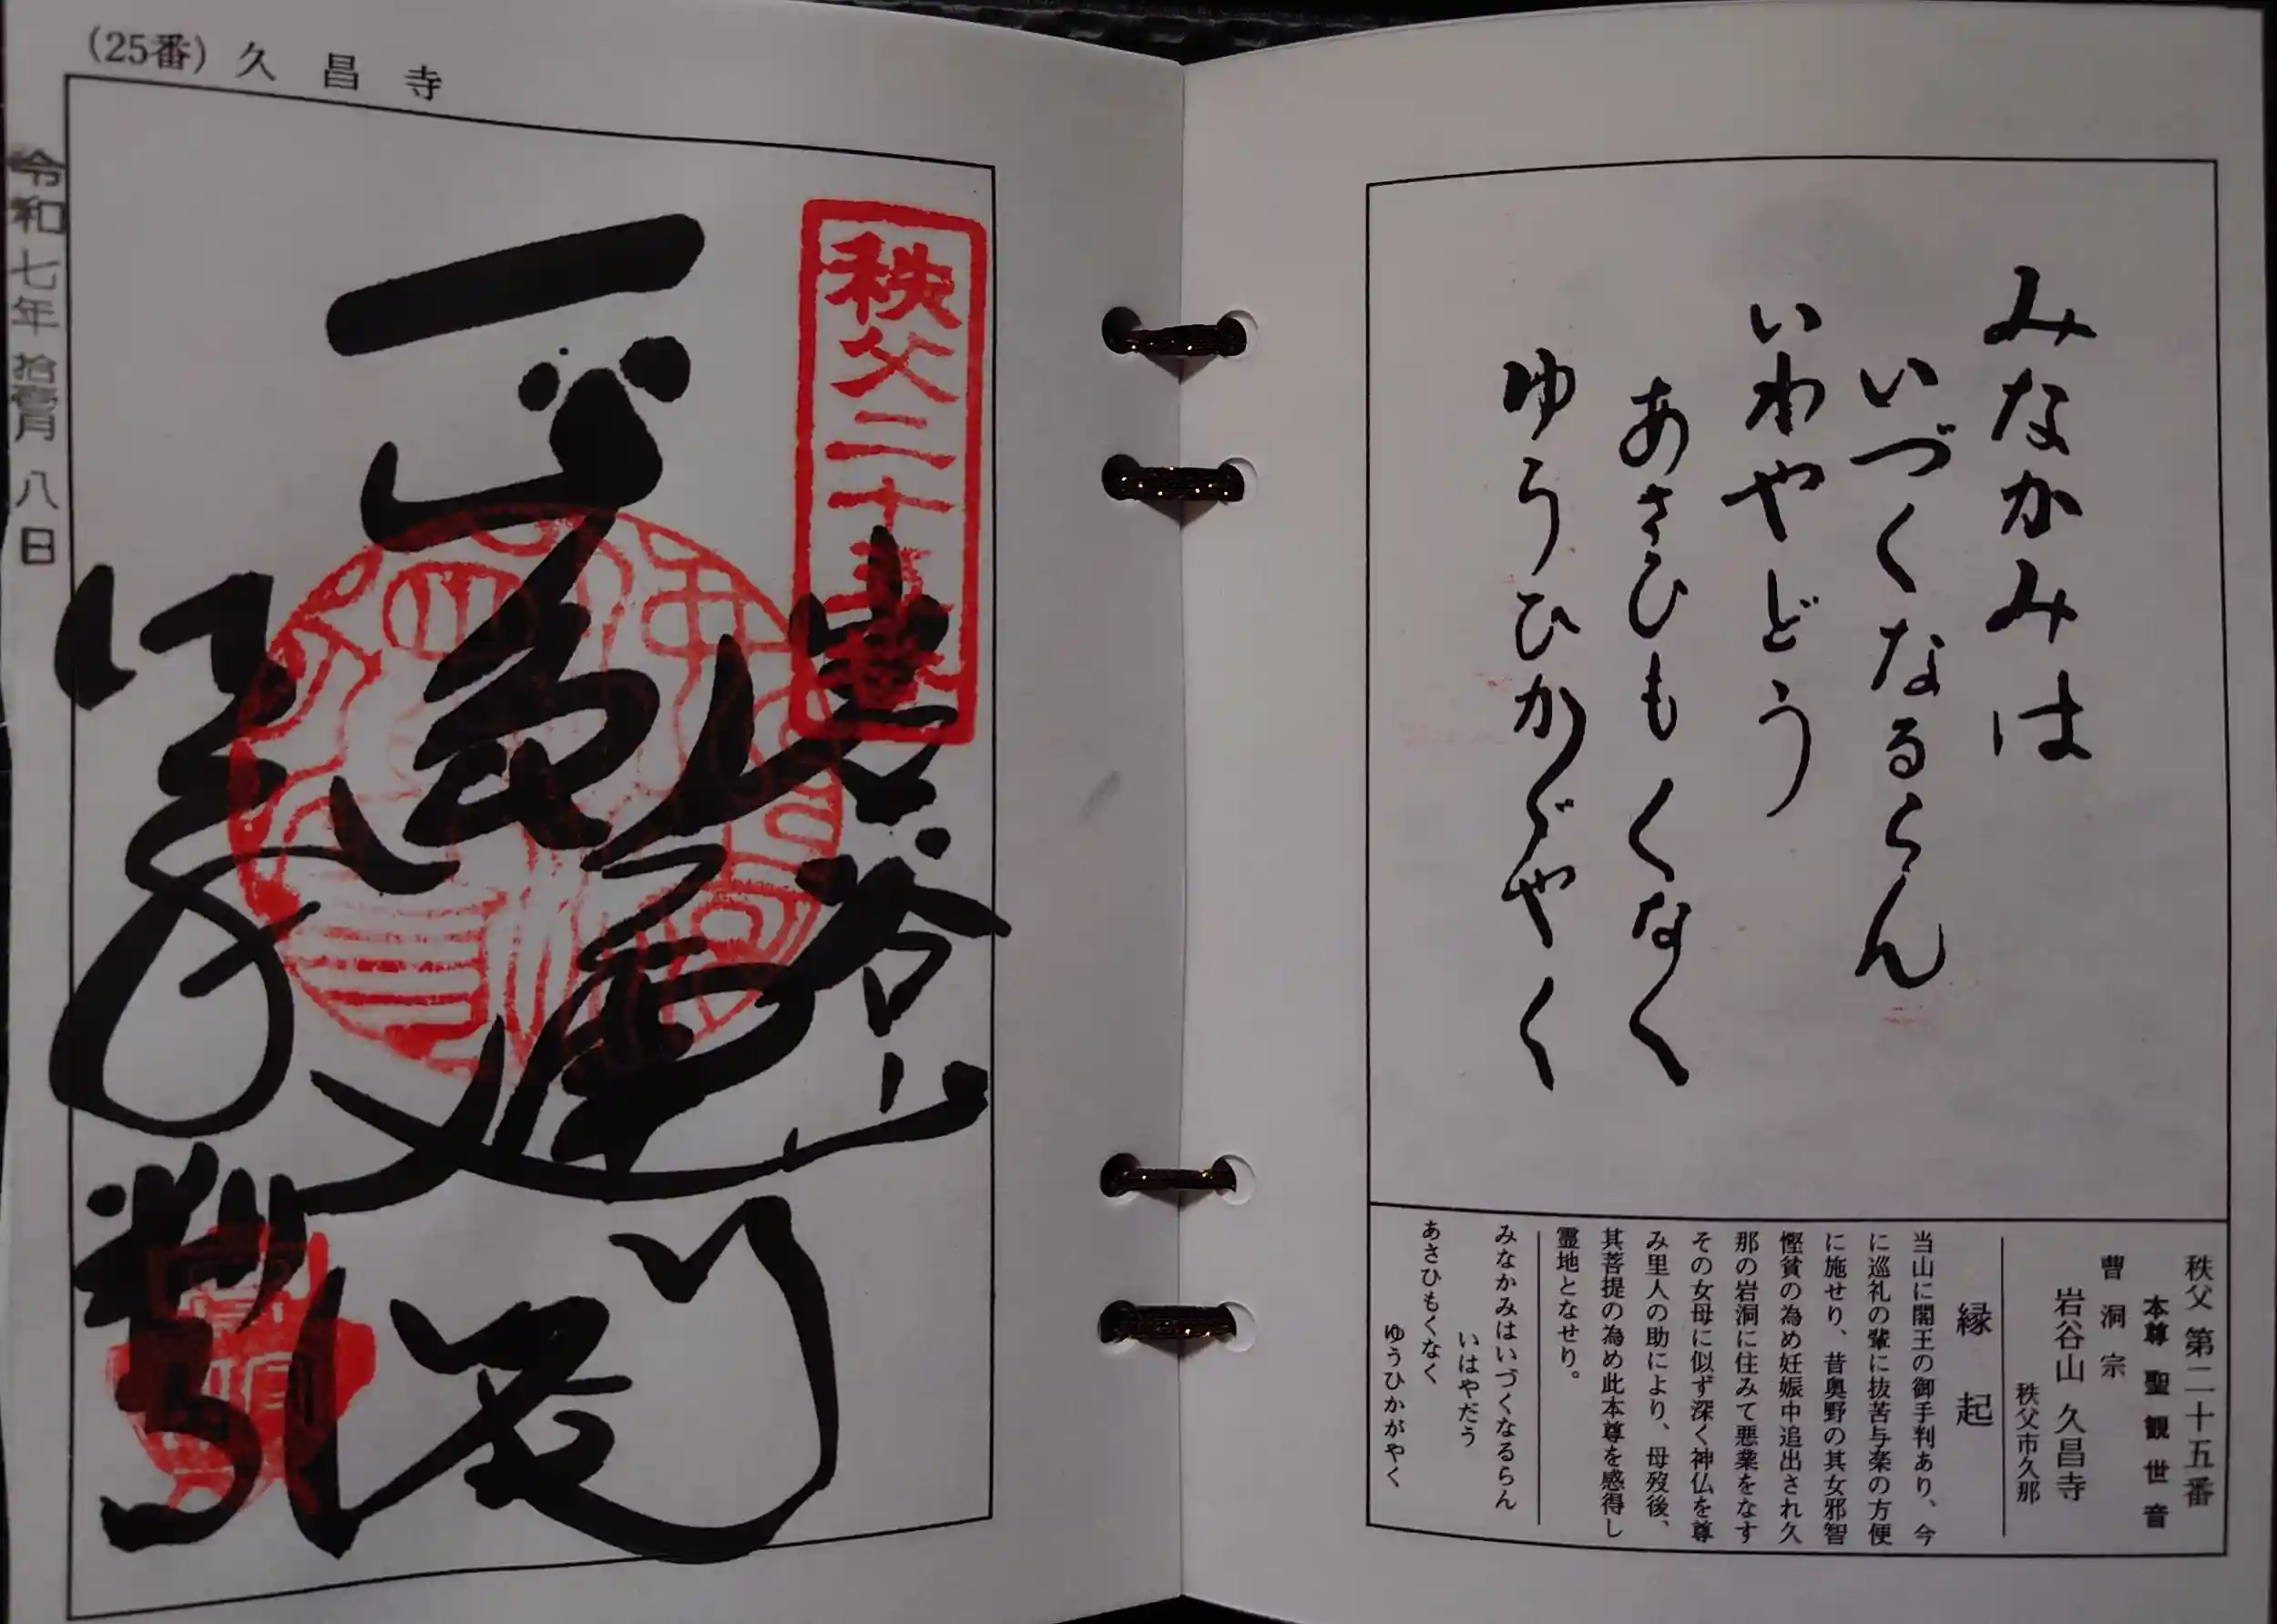 (25番) 久昌寺
令和七年拾壹月八日
秩父二十五番
岩谷山
久昌寺
みなかみは
いづくなるらん
いわやどう
あさひもくなく
ゆうひかゞやく
秩父 第二十五番
本尊 聖観世音
曹洞宗
岩谷山 久昌寺
秩父市久那
縁起
当山に閻王の御手判あり、今
に巡礼の輩に抜苦与楽の方便
に施せり、昔奥野の其女邪智
慳貧の為め妊娠中追出され久
那の岩洞に住みて悪業をなす
その女母に似ず深く神仏を尊
み里人の助により、母歿後、
其菩提の為め此本尊を感得し
霊地となせり。
みなかみはいづくなるらん
いはやだう
あさひもくなく
ゆうひかがやく